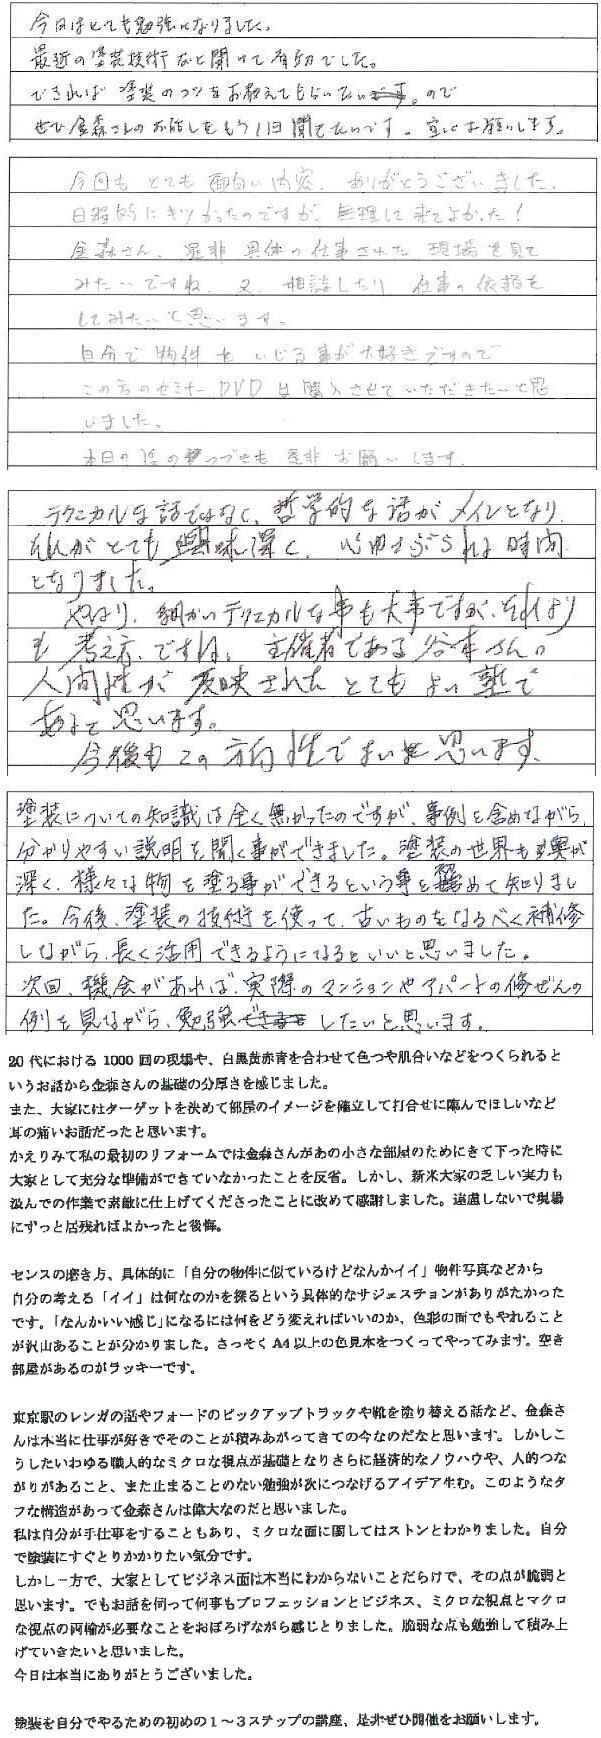 今日はとても勉強になりました。
最近の塗装技術など聞けて有効でした。
できれば塗装のコツをお教えてもらいたいです。ので
ぜひ金森さんのお話しをもう1日聞きたいです。宜しくお願いします。
今回もとても面白い内容、ありがとうございました。
日程的にキツかったのですが、無理して来てよかった!
金森さん、是非具体の仕事された現場を見て
みたいですね、又、相談したり仕事の依頼を
してみたいと思います。
自分で物件をいじる事が大好きですので
この方のセミナーDVDは購入させていただきたいと思
いました。
本日の のつづきも是非お願いします。
テクニカルな話ではなく、哲学的な話がメインとなり、
それがとても興味深く、心ゆさぶられる時間
となりました。
やはり、細かいテクニカルな事も大事ですが、それより
も考え方、ですね。主催者である谷本さんの
人間性が反映されたとてもよい塾で
あると思います。
今後もこの方向性でよいと思います。
塗装についての知識は全く無かったのですが、事例を含めながら、
分かりやすい説明を聞く事ができました。塗装の世界も奥が
深く、様々な物を塗る事ができるという事を改めて知りまし
た。今後、塗装の技術を使って、古いものをなるべく補修
しながら、長く活用できるようになるといいと思いました。
次回、機会があれば、実際のマンションやアパートの修ぜんの
例を見ながら、勉強できるしたいと思います。
20代における1000回の現場や、白黒黄赤青を合わせて色つや肌合いなどをつくられると
いうお話から金森さんの基礎の分厚さを感じました。
また、大家にはターゲットを決めて部屋のイメージを確立して打合せに臨んでほしいなど
耳の痛いお話だったと思います。
かえりみて私の最初のリフォームでは金森さんがあの小さな部屋のためにきて下った時に
大家として充分な準備ができていなかったことを反省。しかし、新米大家の乏しい実力も
汲んでの作業で素敵に仕上げてくださったことに改めて感謝しました。遠慮しないで現場
にずっと居残ればよかったと後悔。
センスの磨き方、具体的に「自分の物件に似ているけどなんかイイ」物件写真などから
自分の考える「イイ」は何なのかを探るという具体的なサジェスチョンがありがたかった
です。「なんかいい感じ」になるには何をどう変えればいいのか、色彩の面でもやれること
が沢山あることが分かりました。さっそくA4以上の色見本をつくってやってみます。空き
部屋があるのがラッキーです。
東京駅のレンガの話やフォードのピックアップトラックや靴を塗り替える話など、金森さ
んは本当に仕事が好きでそのことが積みあがってきての今なのだなと思います。しかしこ
うしたいわゆる職人的なミクロな視点が基礎となりさらに経済的なノウハウや、人的つな
がりがあること、また止まることのない勉強が次につなげるアイデア生む。このようなタ
フな構造があって金森さんは偉大なのだと思いました。
私は自分が手仕事をすることもあり、ミクロな面に関してはストンとわかりました。自分
で塗装にすぐとりかかりたい気分です。
しかし一方で、大家としてビジネス面は本当にわからないことだらけで、その点が脆弱と
思います。でもお話を伺って何事もプロフェッションとビジネス、ミクロな視点とマクロ
な視点の両輪が必要なことをおぼろげながら感じとりました。脆弱な点も勉強して積み上
げていきたいと思いました。
今日は本当にありがとうございました。
塗装を自分でやるための初めの1〜3ステップの講座、是非ぜひ開催をお願いします。